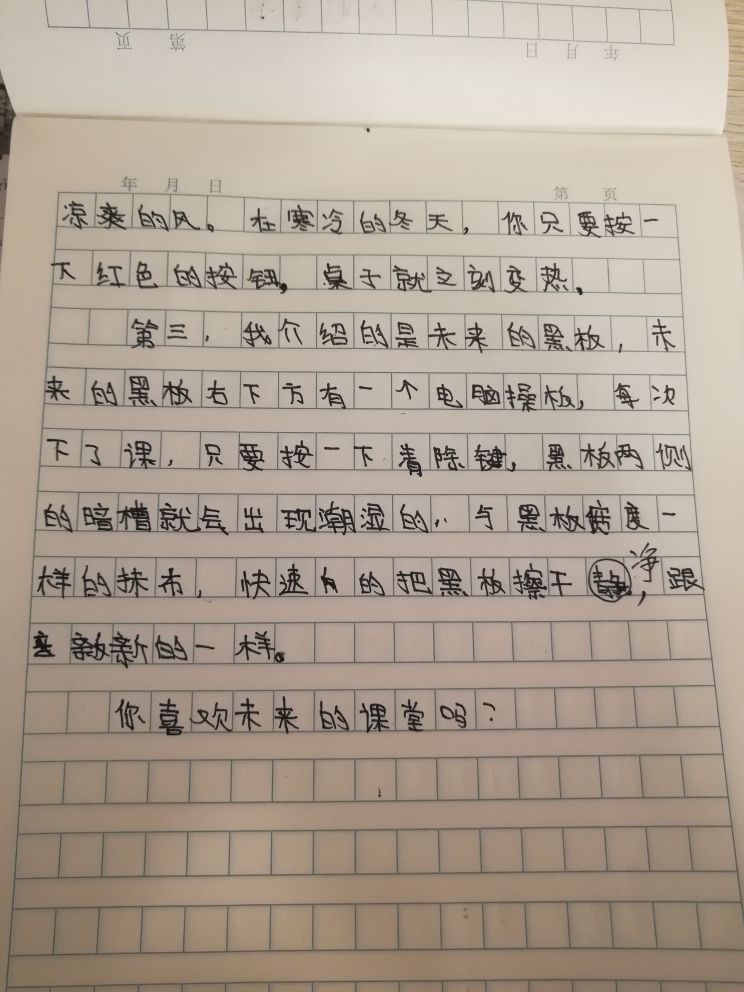 年 月 日
第 页
年 月 日
第 页
凉爽的风。在寒冷的冬天，你只要按一
下红色的按钮，桌子就立刻变热。
第三，我介绍的是未来的黑板，未
来的黑板右下方有一个电脑操板，每次
下了课，只要按一下清除键，黑板两侧
的暗槽就会出现潮湿的，与黑板宽度一
样的抹布，快速的把黑板擦干净，跟
新新的一样。
你喜欢未来的课堂吗？